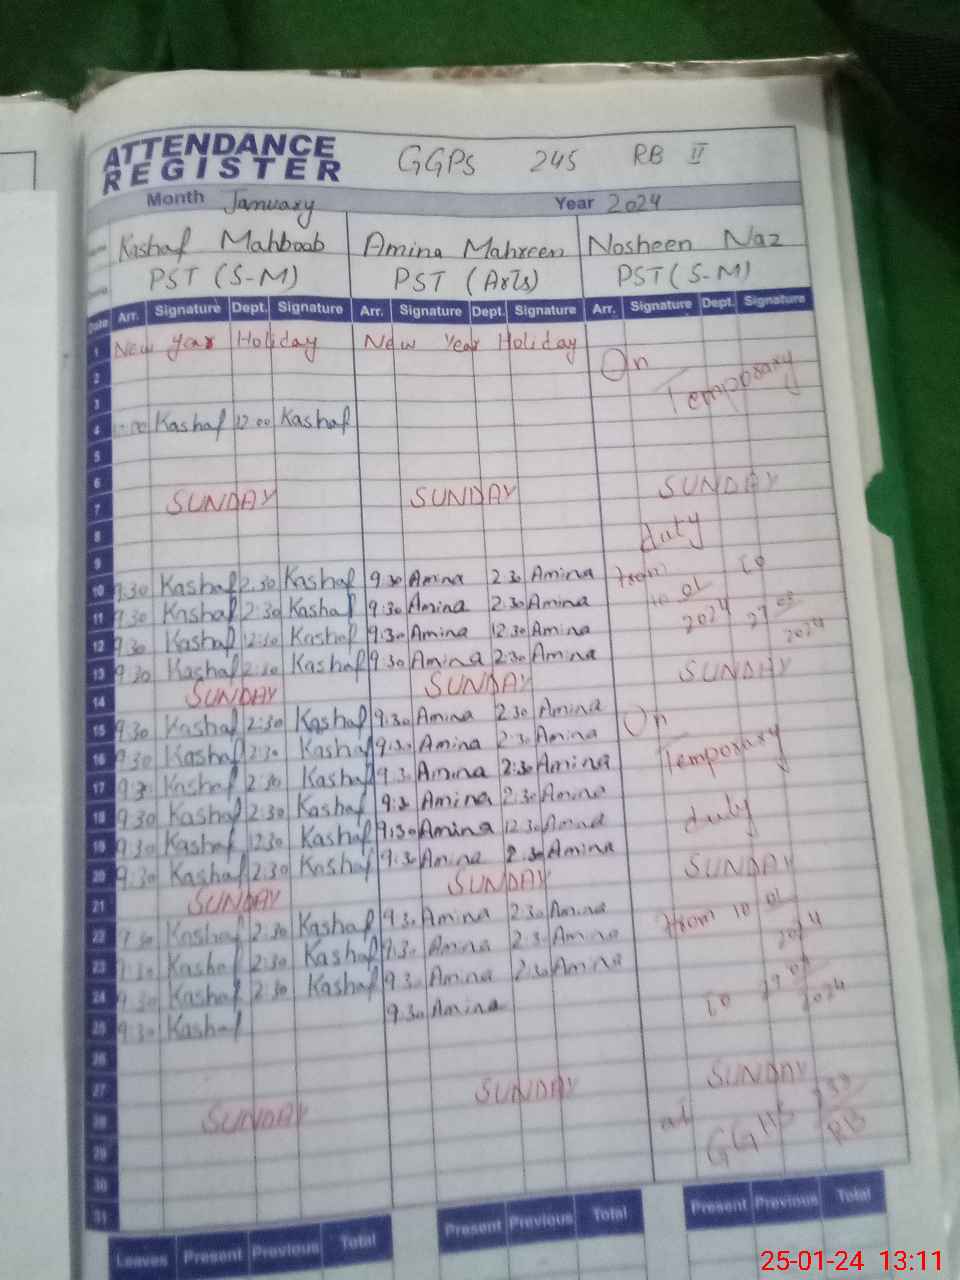 ATTENDANCE REGISTER GGPS 245 RB II
Month January Year 2024
Kashaf Mahboob Amina Mahreen Nosheen Naz
PST (S-M) PST (Arts) PST (S-M)
Date Arr. Signature Dept. Signature Arr. Signature Dept. Signature Arr. Signature Dept. Signature
1 New Year Holiday New Year Holiday On
2 Temporary
3
4 Kashaf 12:00 Kashaf
5
6
7 SUNDAY SUNDAY SUNDAY
8 duty
9
10 9:30 Kashaf 2:30 Kashaf 9:30 Amina 2:30 Amina from to
11 9:30 Kashaf 2:30 Kashaf 9:30 Amina 2:30 Amina 2024
12 9:30 Kashaf 12:30 Kashaf 9:30 Amina 12:30 Amina 2024
13 9:30 Kashaf 2:30 Kashaf 9:30 Amina 2:30 Amina SUNDAY
14 SUNDAY SUNDAY
15 9:30 Kashaf 2:30 Kashaf 9:30 Amina 2:30 Amina On
16 9:30 Kashaf 2:30 Kashaf 9:30 Amina 2:30 Amina Temporary
17 9:30 Kashaf 2:30 Kashaf 9:30 Amina 2:30 Amina
18 9:30 Kashaf 2:30 Kashaf 9:30 Amina 2:30 Amina duty
19 9:30 Kashaf 12:30 Kashaf 9:30 Amina 12:30 Amina
20 9:30 Kashaf 2:30 Kashaf 9:30 Amina 2:30 Amina SUNDAY
21 SUNDAY SUNDAY
22 9:30 Kashaf 2:30 Kashaf 9:30 Amina 2:30 Amina from 10
23 9:30 Kashaf 2:30 Kashaf 9:30 Amina 2:30 Amina
24 9:30 Kashaf 2:30 Kashaf 9:30 Amina 2:30 Amina to 2024
25 9:30 Kashaf 9:30 Amina
26
27 SUNDAY SUNDAY
28 SUNDAY at GGHS RB
29
30
31
Leaves Present Previous Total Present Previous Total Present Previous Total
25-01-24 13:11